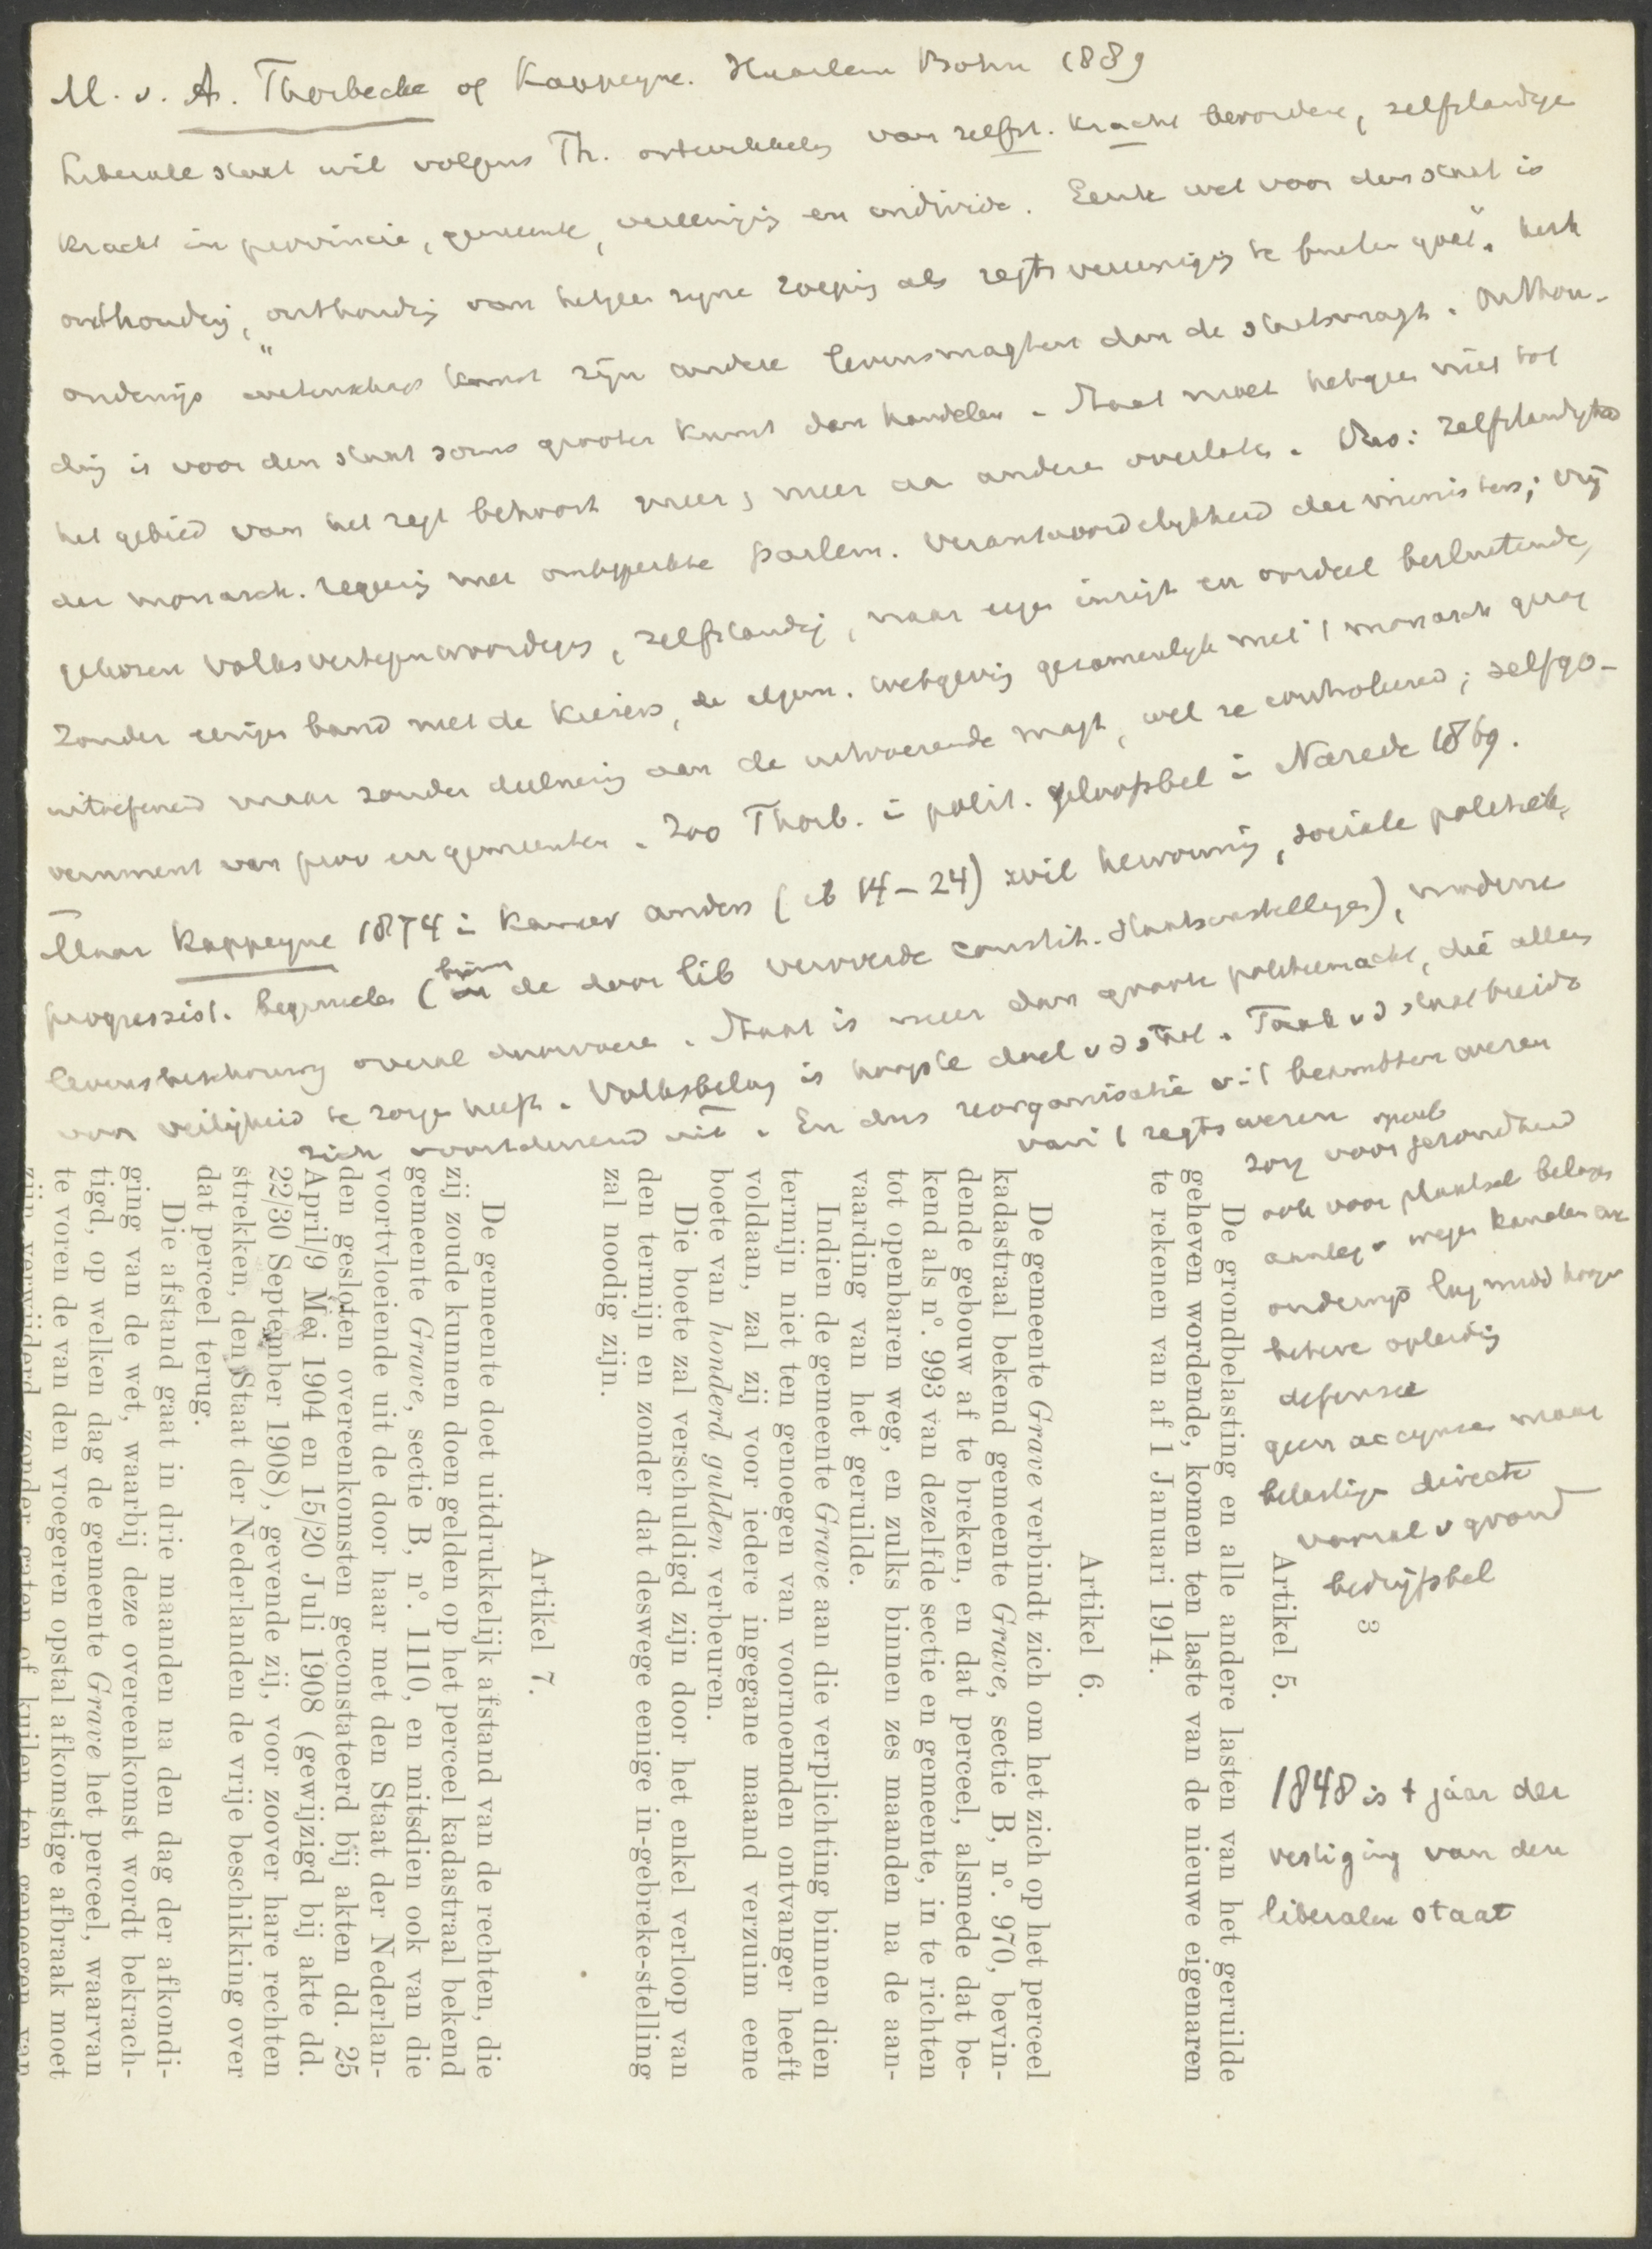 M. v. A. Thorbecke of Kappeyne. Haarlem Bohn 1889
Liberale staat wil volgens Th. ontwikkeling van zelfst. kracht bevorderen, zelfstandige
kracht in provincie, gemeente, vereeniging en individu. Eerste wet voor den staat is
onthouding, "onthouding van hetgeen zijne roeping als regtsvereeniging te buiten gaat". Kerk
onderwijs wetenschap kunst zijn andere levensmagten dan de staatsmagt. Onthou-
ding is voor den staat soms grooter kunst dan handelen. Staat moet hetgeen niet tot
het gebied van het regt behoort meer en meer aan anderen overlaten. Dus: zelfstandigheid
der monarch. regering met onbeperkte parlem. verantwoordelijkheid der ministers; vrij
gekozen volksvertegenwoordigers, zelfstandig, naar eigen inzigt en oordeel besluitende,
zonder eenigen band met de kiezers, de algem. wetgeving gezamenlijk met 't monarch. gezag
uitoefenend maar zonder deelneming aan de uitvoerende magt, wel ze controleerend; selfgo-
vernment van prov en gemeenten. Zoo Thorb. in polit. geloofsbel in Narede 1869.
Maar Kappeyne 1874 in Kamer anders (ib 14-24) wil hervorming, sociale politiek,
progressist. beginselen (binnen de door lib veroverde constit. staatsinstellingen), moderne
levensbeschouwing overal doorvoeren. Staat is meer dan groote politiemacht, die alleen
voor veiligheid te zorgen heeft. Volksbelang is hoogste doel v d staat. Taak v d staat breidt
zich voortdurend uit. En dus reorganisatie v 't besmettere wezen
van 't regtswezen
zorg voor gezondheid
ook voor plaatsel belangen
aanleg v wegen kanalen enz
onderwijs lag midd hooger
betere opleiding
defensie
geen accijnzen maar
belasting directe
vooral v grond
bedrijfsbel
3
Artikel 5.
De grondbelasting en alle andere lasten van het geruilde
geheven wordende, komen ten laste van de nieuwe eigenaren
te rekenen van af 1 Januari 1914.
Artikel 6.
De gemeente Grave verbindt zich om het zich op het perceel
kadastraal bekend gemeente Grave, sectie B, n°. 970, bevin-
dende gebouw af te breken, en dat perceel, alsmede dat be-
kend als n°. 993 van dezelfde sectie en gemeente, in te richten
tot openbaren weg, en zulks binnen zes maanden na de aan-
vaarding van het geruilde.
Indien de gemeente Grave aan die verplichting binnen dien
termijn niet ten genoegen van voornoemden ontvanger heeft
voldaan, zal zij voor iedere ingegane maand verzuim eene
boete van honderd gulden verbeuren.
Die boete zal verschuldigd zijn door het enkel verloop van
den termijn en zonder dat deswege eenige in-gebreke-stelling
zal noodig zijn.
Artikel 7.
De gemeente doet uitdrukkelijk afstand van de rechten, die
zij zoude kunnen doen gelden op het perceel kadastraal bekend
gemeente Grave, sectie B, n°. 1110, en mitsdien ook van die
voortvloeiende uit de door haar met den Staat der Nederlan-
den gesloten overeenkomsten geconstateerd bij akten dd. 25
April/9 Mei 1904 en 15/20 Juli 1908 (gewijzigd bij akte dd.
22/30 September 1908), gevende zij, voor zoover hare rechten
strekken, den Staat der Nederlanden de vrije beschikking over
dat perceel terug.
Die afstand gaat in drie maanden na den dag der afkondi-
ging van de wet, waarbij deze overeenkomst wordt bekrach-
tigd, op welken dag de gemeente Grave het perceel, waarvan
te voren de van den vroegeren opstal afkomstige afbraak moet
zijn verwijderd, zonder gaten of kuilen ten genoegen van
1848 is 't jaar der
vestiging van den
liberalen staat